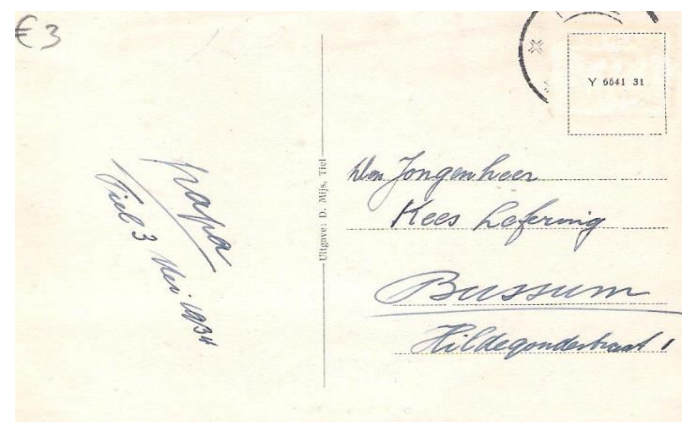 €3
Y 6641 31
papa
Tiel 3 Mei 1934
Uitgave: D. Mijs, Tiel
Den Jongenheer
Kees Lefering
Bussum
Hildegondestraat 1